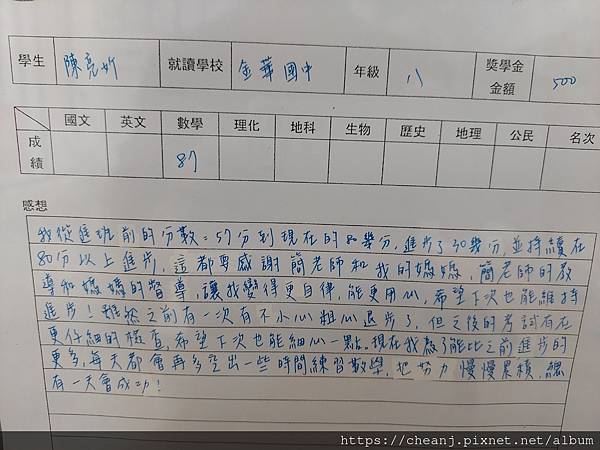 學生 陳亮妡 就讀學校 金華國中 年級 八 獎學金金額 500
國文 英文 數學 理化 地科 生物 歷史 地理 公民 名次
成績 87
感想
我從進班前的分數:57分到現在的80幾分,進步了30幾分,並持續在
80分以上進步,這都要感謝簡老師和我的媽媽,簡老師的教
導和媽媽的督導,讓我變得更自律,能更用心,希望下次也能維持
進步!雖然之前有一次有不小心粗心退步了,但之後的考試有在
更仔細的檢查,希望下次也能細心一點,現在我為了能比之前進步的
更多,每天都會再多空出一些時間練習數學,也努力慢慢累積,總
有一天會成功!
https://cheanj.pixnet.net/album